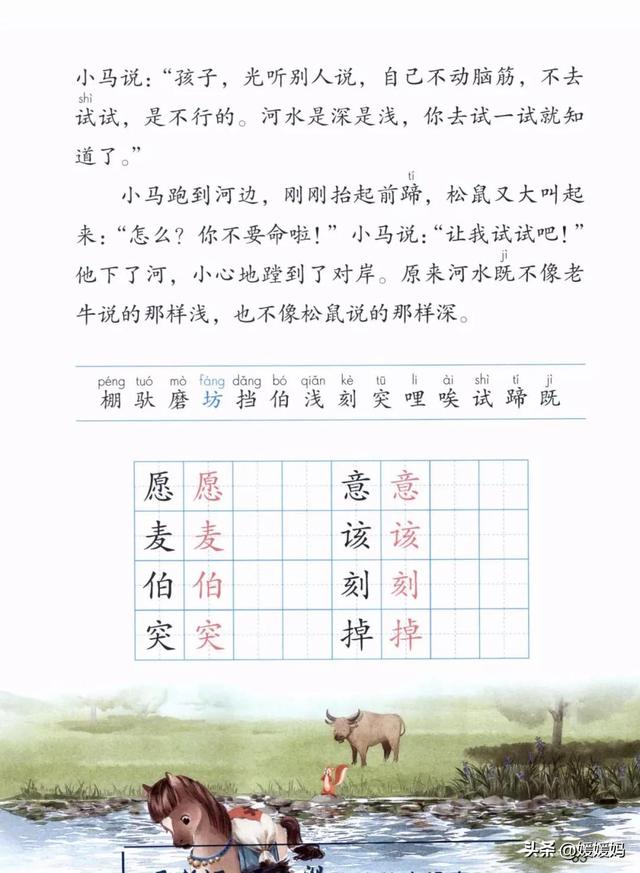 小马说：“孩子，光听别人说，自己不动脑筋，不去
shì
试试，是不行的。河水是深是浅，你去试一试就知
道了。”
tí
小马跑到河边，刚刚抬起前蹄，松鼠又大叫起
来：“怎么？你不要命啦！”小马说：“让我试试吧！”
jì
他下了河，小心地蹚到了对岸。原来河水既不像老
牛说的那样浅，也不像松鼠说的那样深。
péng tuó mò fáng dǎng bó qiǎn kè tū li ài shì tí jì
棚 驮 磨 坊 挡 伯 浅 刻 突 哩 唉 试 蹄 既
愿 愿 意 意
麦 麦 该 该
伯 伯 刻 刻
突 突 掉 掉
头条 @媛媛妈